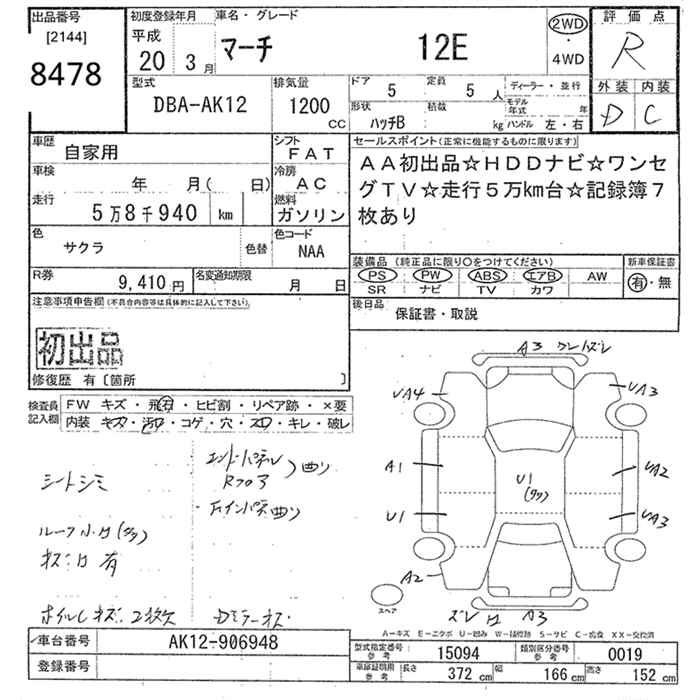 出品番号
[2144]
8478
初度登録年月
平成
20 3月
車名・グレード
マーチ 12E
2WD
・
4WD
評価点
R
外装 内装
D C
型式
DBA-AK12
排気量
1200
CC
ドア 5
定員 5人
ディーラー・並行
モデル年式 年
形状 ハッチB
積載 kg
ハンドル 左・右
車歴 自家用
シフト FAT
車検 年 月( 日)
冷房 AC
走行 5万8千940 km
燃料 ガソリン
色 サクラ
色替
色コード NAA
R券 9,410円
名変通知期限 月 日
セールスポイント(正常に機能するものに限ります)
AA初出品☆HDDナビ☆ワンセ
グTV☆走行5万km台☆記録簿7
枚あり
装備品(純正品に限り○をつけてください)
新車保証書
PS PW ABS エアB AW
SR ナビ TV カワ
有・無
後日品
保証書・取説
注意事項申告欄(不具合内容等は具体的に記入して下さい)
初出品
修復歴 有〔箇所 〕
検査員
記入欄
FW キズ・飛石・ヒビ割・リペア跡・×要
内装 キズ・汚れ・コゲ・穴・スレ・キレ・破レ
シートシミ
ルーフ小凹(多)
キズ凹有
ホイルキズ
Rフロア
曲り
Dミラーキズ
A3
UA4
UA3
A1
U1
U1
(多)
UA2
UA3
A2
A3
スペア
A-キズ E-エクボ U-凹み W-補修跡 S-サビ C-腐食 XX-交換済
車台番号 AK12-906948
登録番号
型式指定番号 参考 15094
類別区分番号 参考 0019
車庫証明用 参考
長さ 372cm
幅 166cm
高さ 152cm